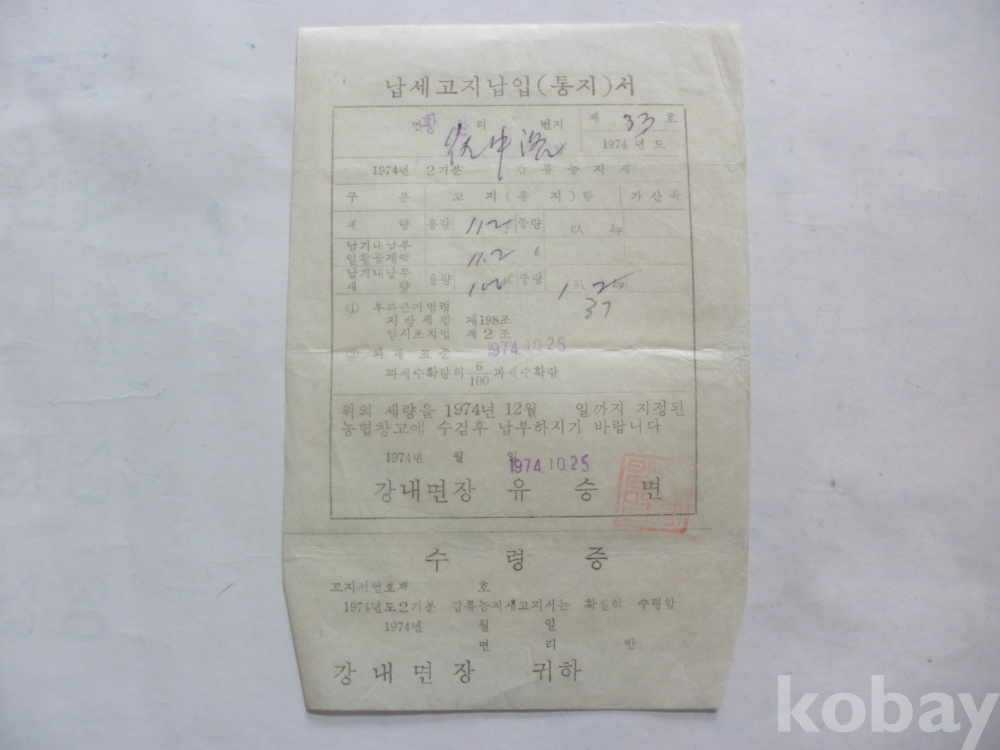 납세고지납입(통지)서
면 황 리 번지 제 33 호
1974년도
1974년 2기분 갑류농지세
구 분 고지(통지)량 가산곡
세 량 용량 112 중량 叺 kg
납기내납부
일할공제액 11.2
납기내납부
세 량 용량 중량
37
① 부과근거법령
지방세법 제198조
임시조치법 제2조
② 과세표준 1974.10.25
과세수확량의 6/100 과세수확량
위의 세량을 1974년 12월 일까지 지정된
농협창고에 수검후 납부하시기 바랍니다
1974년 월 일 1974.10.25
강내면장 유 승 면
수 령 증
고지서번호제 호
1974년도2기분 갑류농지세고지서는 확실히 수령함
1974년 월 일
면 리 반
강내면장 귀하
kobay